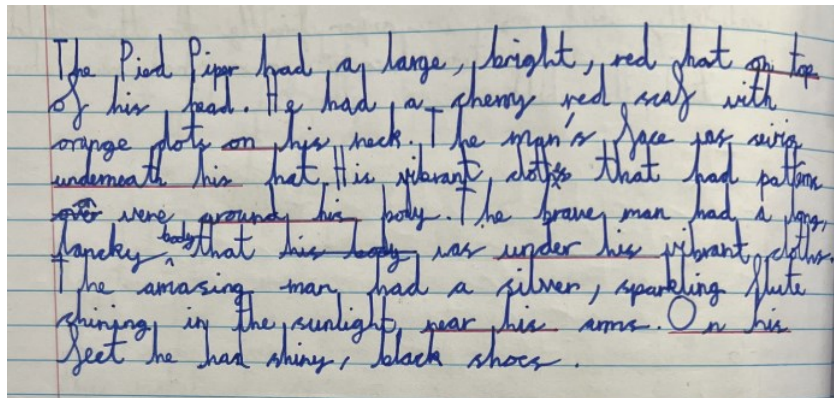 The Pied Piper had a large, bright, red hat on top
of his head. He had a cherry red scaf with
orange dots on his neck. The man's face was
underneath his hat. His vibrant, cloths that had patterns
were around his body. The brave, man had a long,
laneky body that his body was under his vibrant, cloths.
The amasing man had a silver, sparkling flute
shining, in the sunlight, near his arms. On his
feet he had shiny, black shoes.